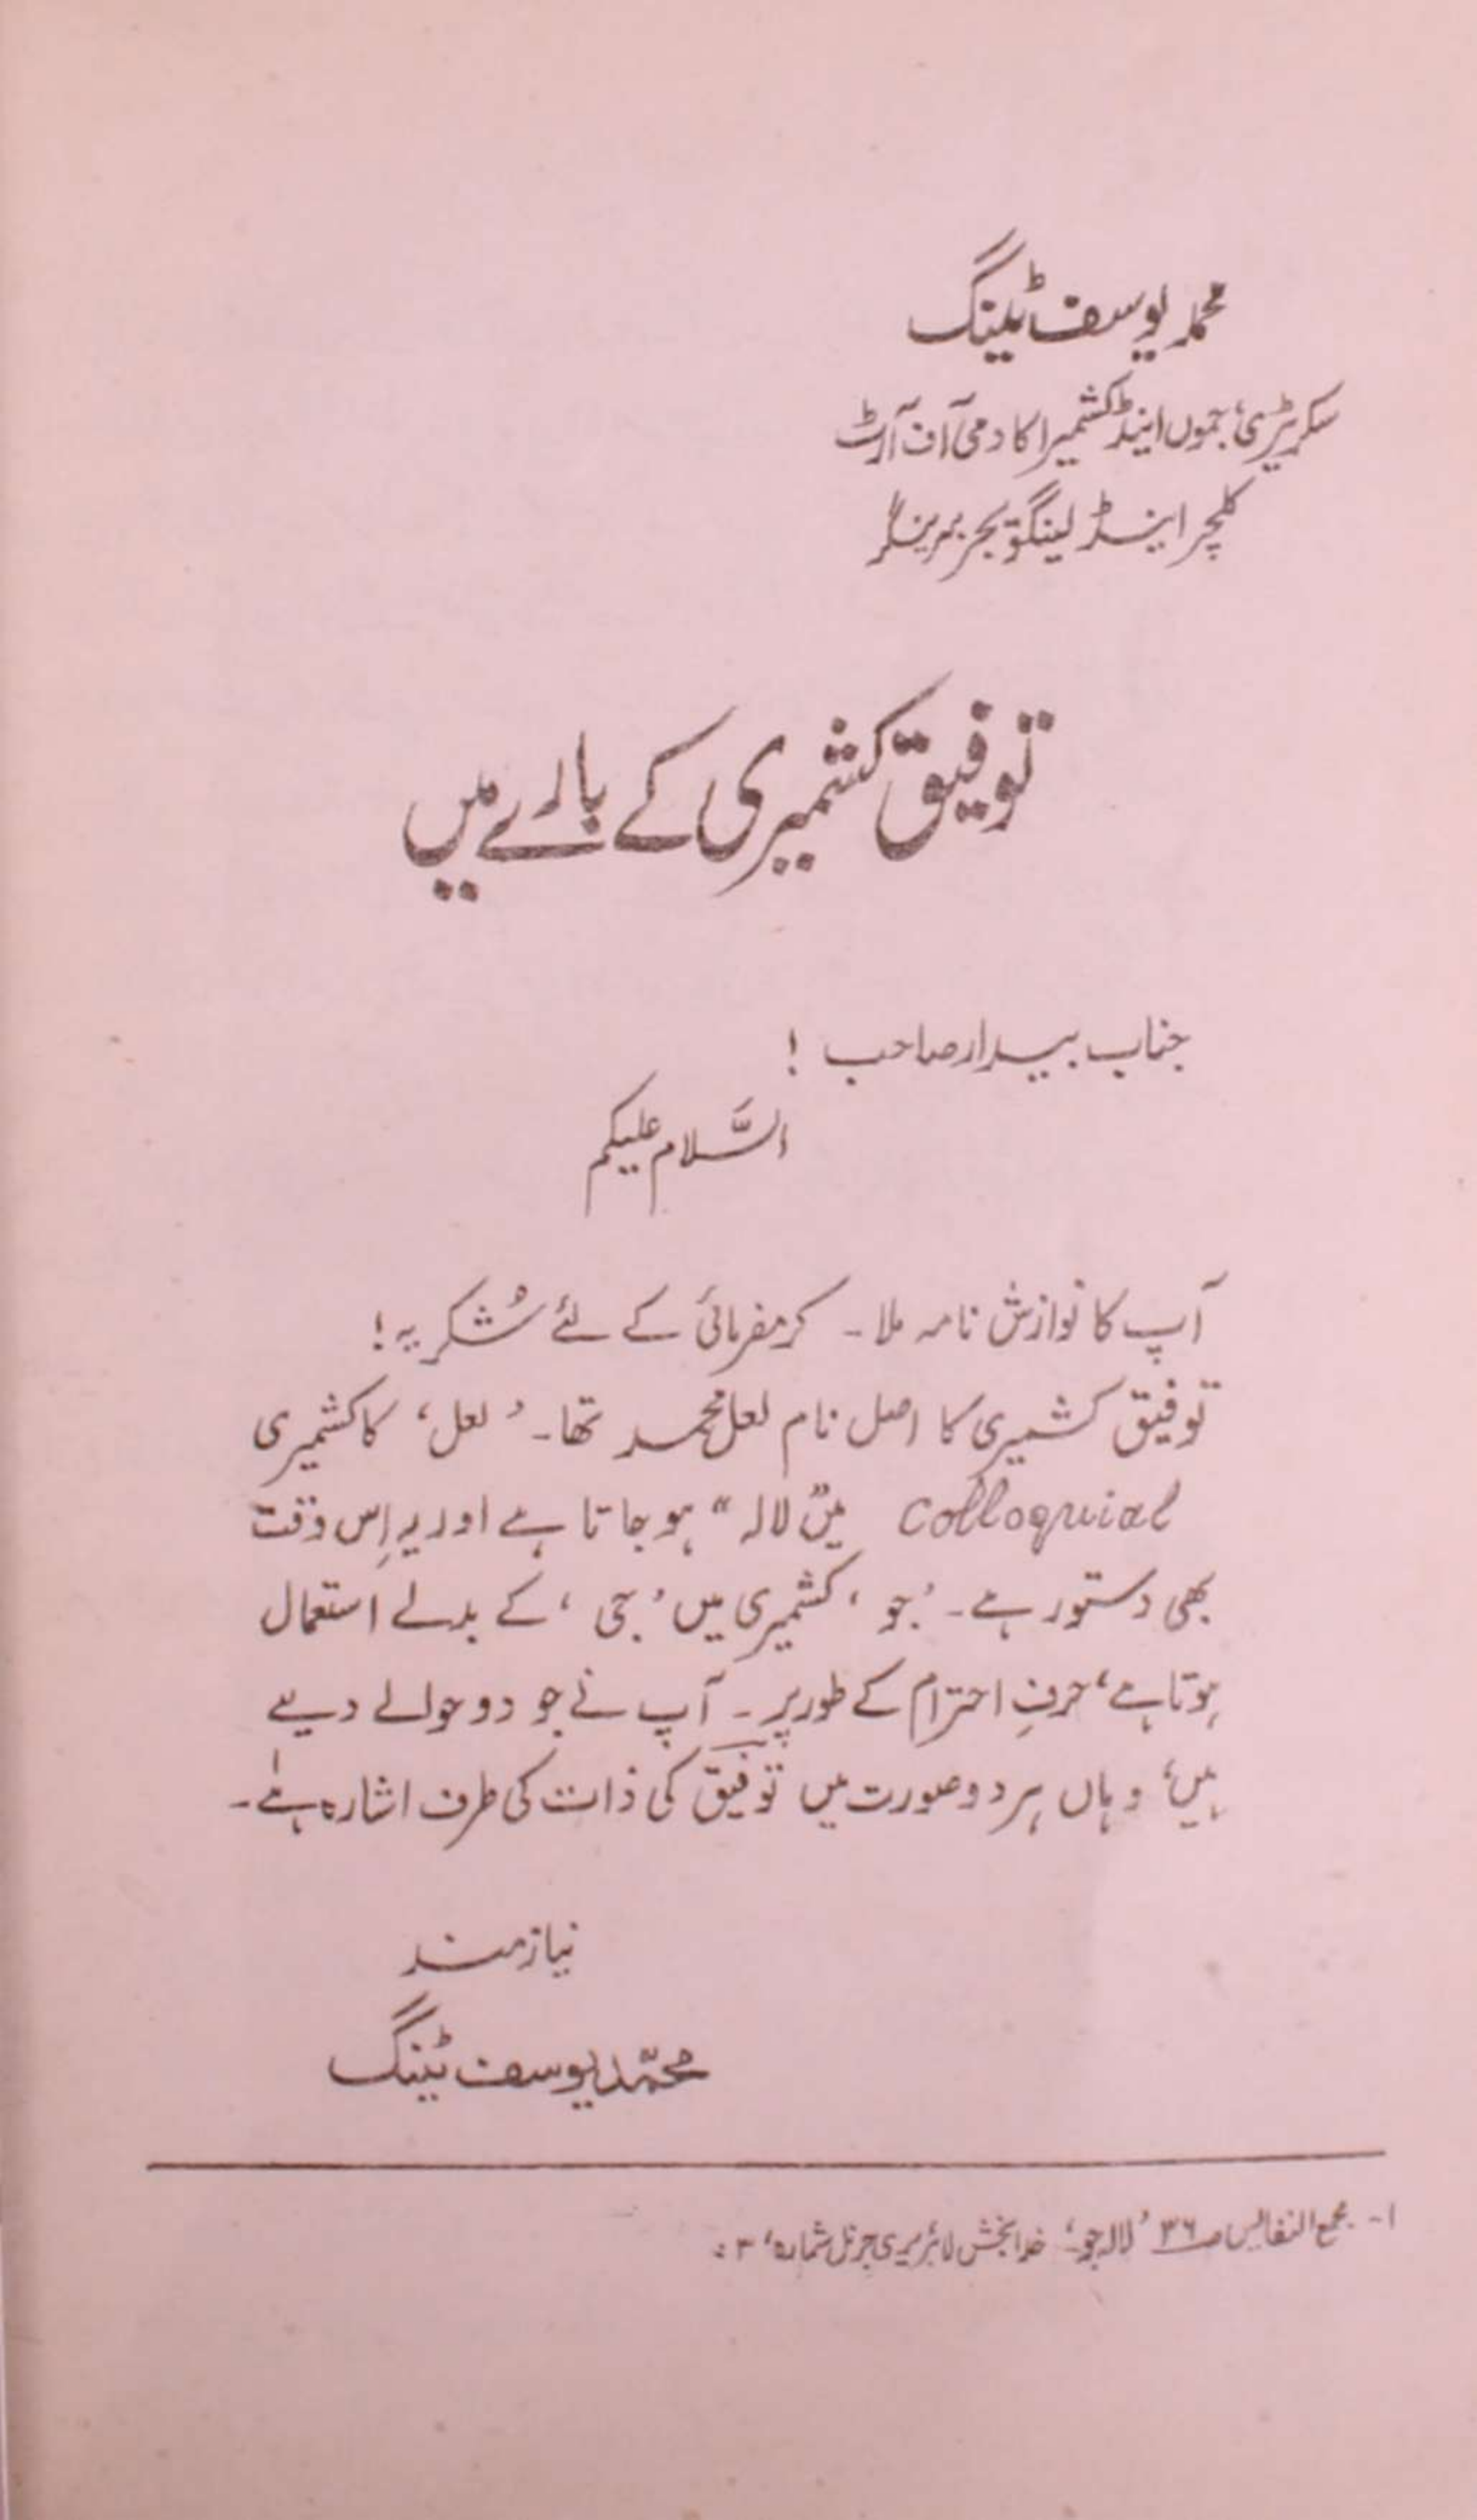 محمد یوسف ٹینگ
سکریٹری، جموں اینڈ کشمیر اکادمی آف آرٹ
کلچر اینڈ لینگویجز سرینگر
توفیق کشمیری کے بارے میں
جناب بیدار صاحب !
السَّلام علیکم
آپ کا نوازش نامہ ملا ۔ کرمفرمائی کے لئے شُکریہ !
توفیق کشمیری کا اصل نام لعل محمد تھا۔ ’ لعل ‘ کا کشمیری
Colloquial میں ” لالہ “ ہو جاتا ہے اور یہ اِس وقت
بھی دستور ہے ۔ ’ جو ‘ کشمیری میں ’ جی ‘ کے بدلے استعمال
ہوتا ہے ، حرفِ احترام کے طور پر ۔ آپ نے جو دو حوالے دیے
ہیں ، وہاں ہر دو صورت میں توفیق کی ذات کی طرف اشارہ ہے ۔
نیازمند
محمّد یوسف ٹینگ
۱۔ مجمع النفایس صـ ۳۶ ’ لالہ جو ‘ ، خدا بخش لائبریری جرنل شمارہ ، ۳ :